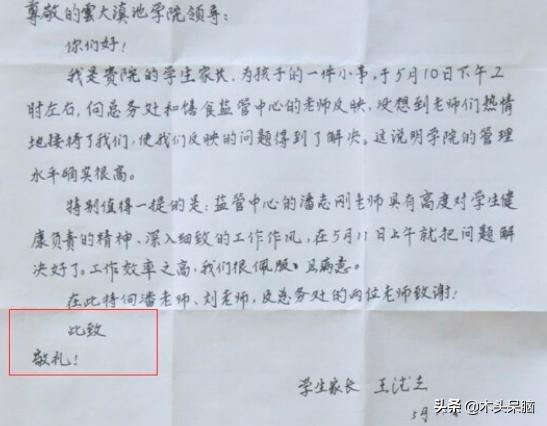 尊敬的雲大滇池学院领导:
你们好!
我是贵院的学生家长,为孩子的一件小事,于5月10日下午2
时左右,向总务处和膳食监管中心的老师反映,没想到老师们热情
地接待了我们,使我们反映的问题得到了解决。这说明学院的管理
水平确实很高。
特别值得一提的是:监管中心的潘志刚老师具有高度对学生健
康负责的精神、深入细致的工作作风,在5月11日上午就把问题解
决好了。工作效率之高,我们很佩服、且满意。
在此特向潘老师、刘老师,及总务处的两位老师致谢!
此致
敬礼!
学生家长 王
5月
头条 @木头呆脑